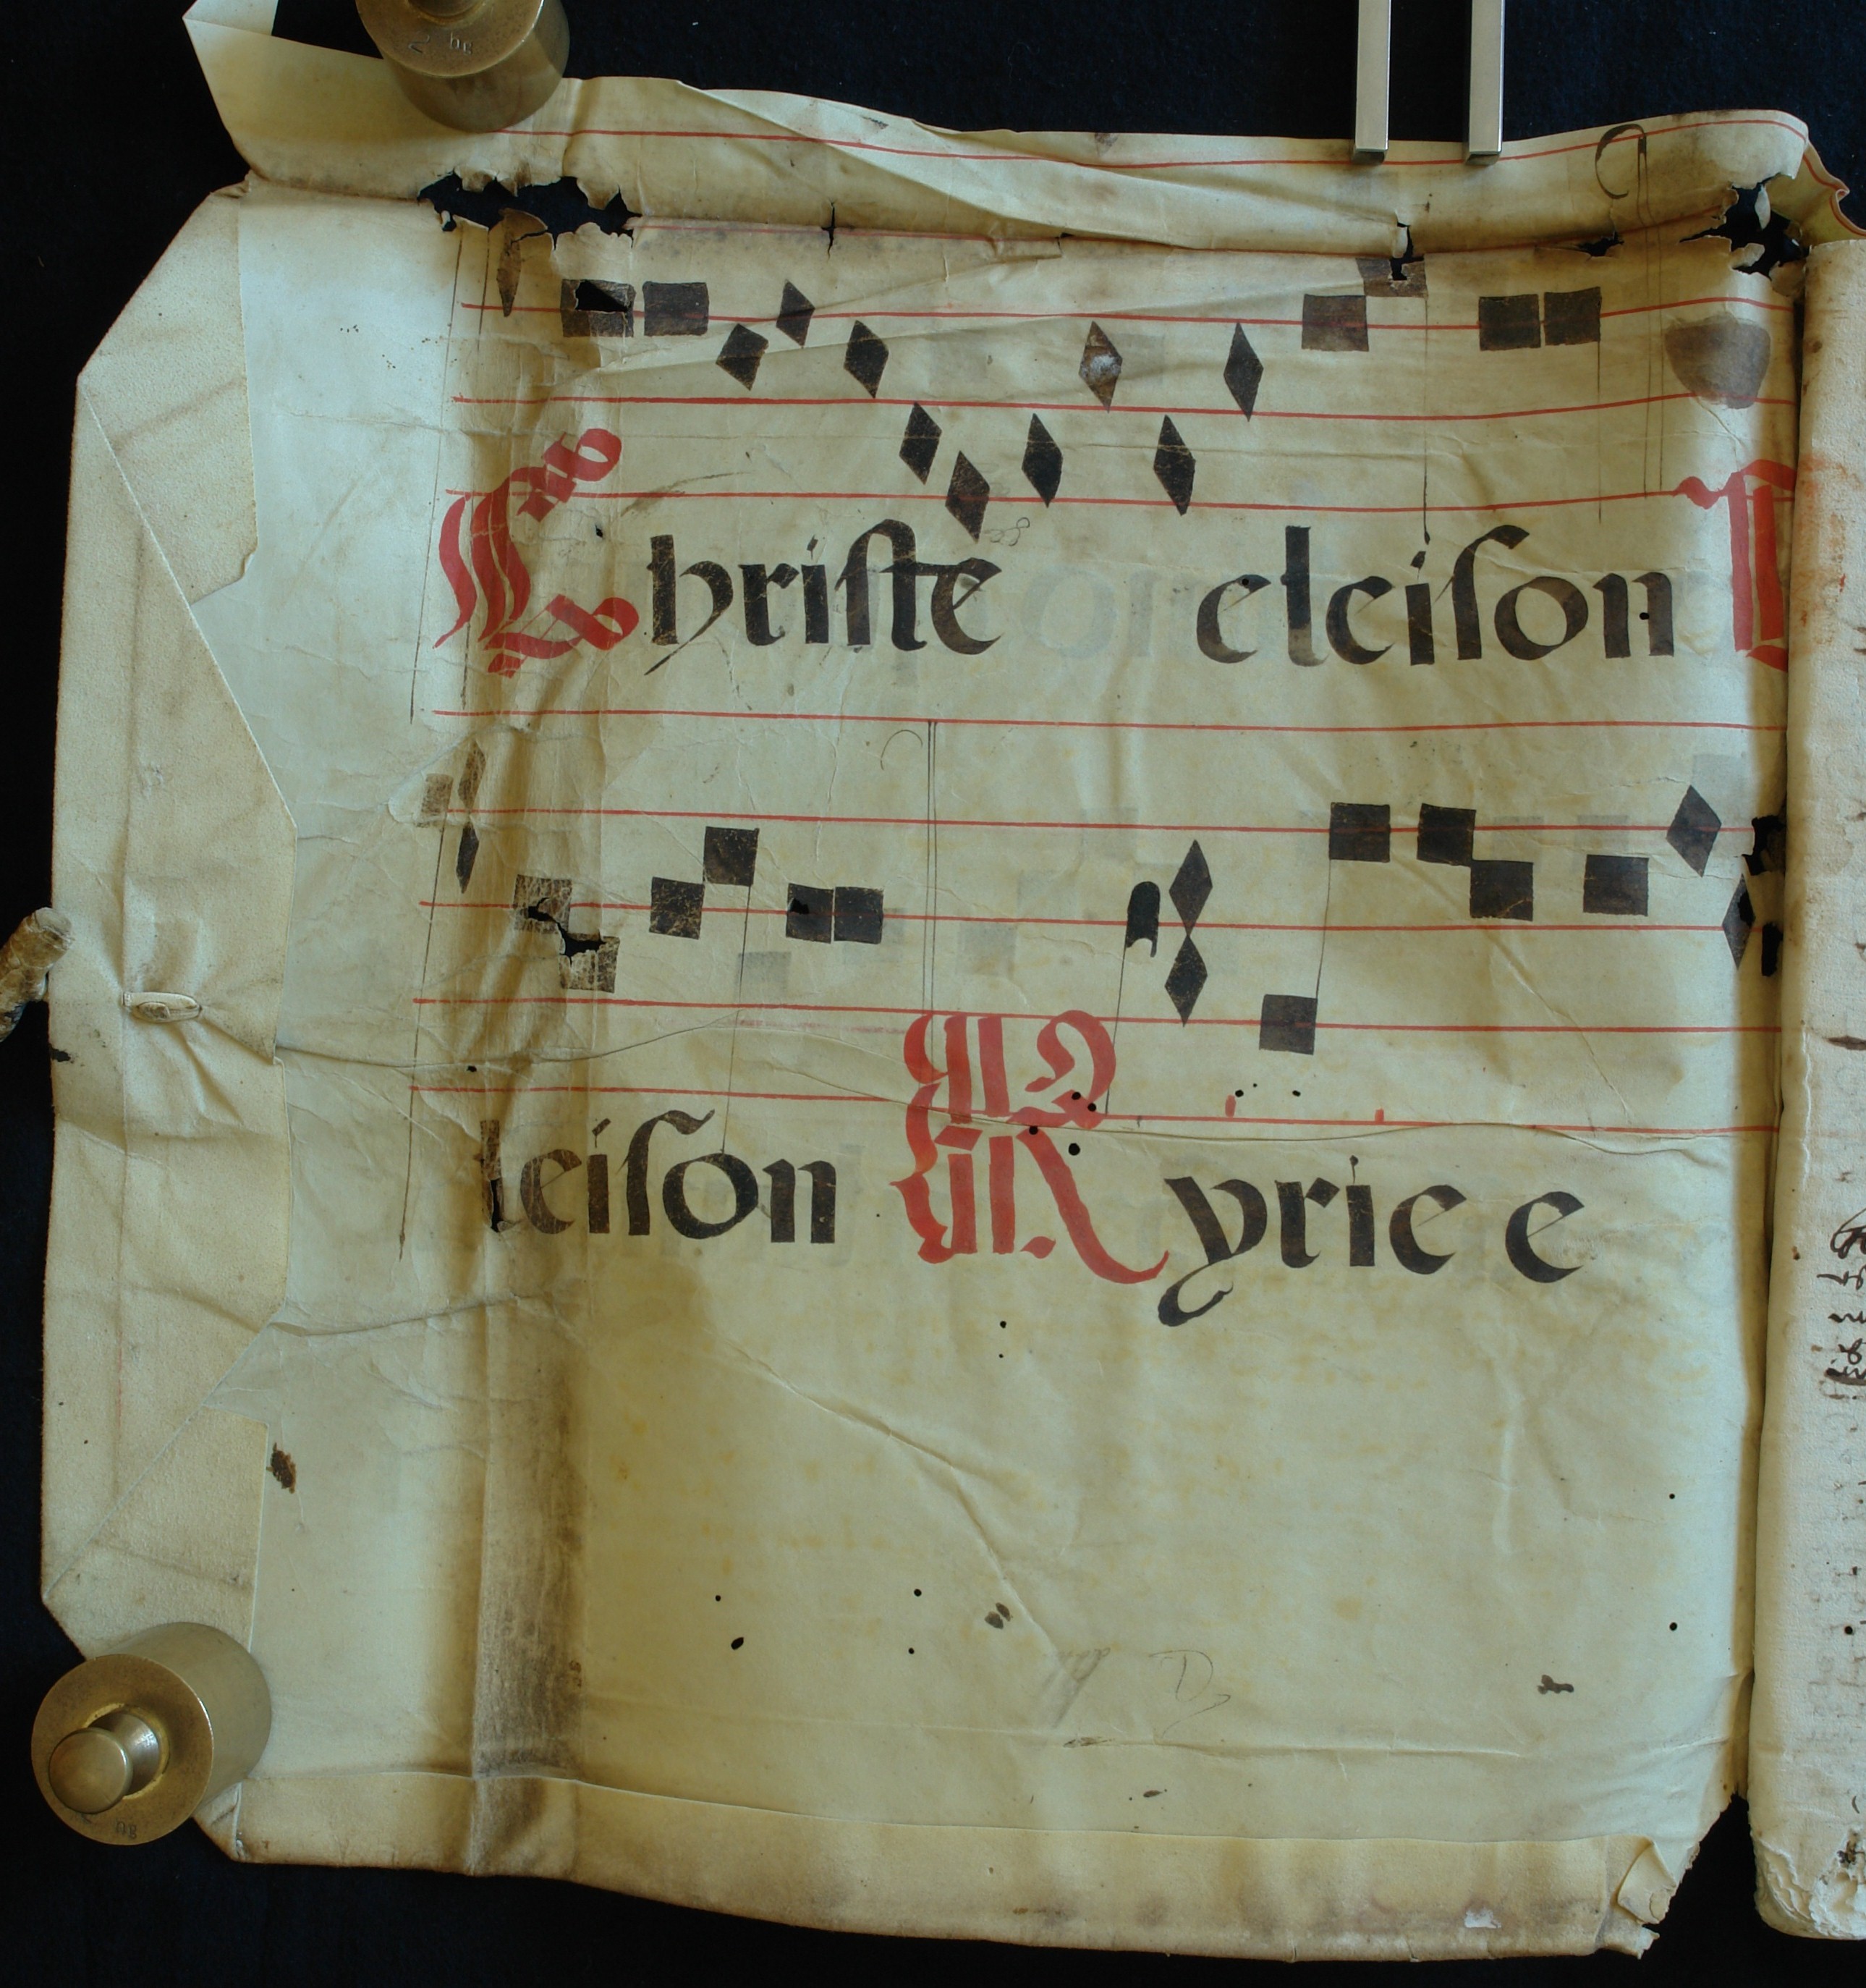 Christe eleison
leison Kyrie e